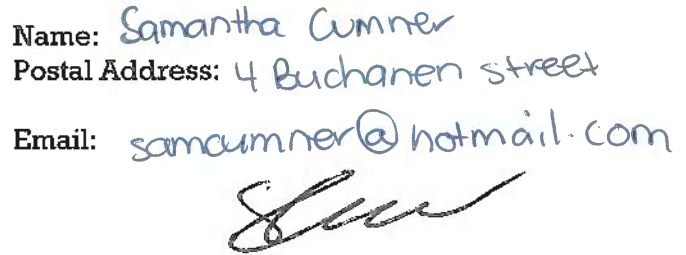 Name: Samantha Cumner
Postal Address: 4 Buchanen street
Email: samcumner@hotmail.com